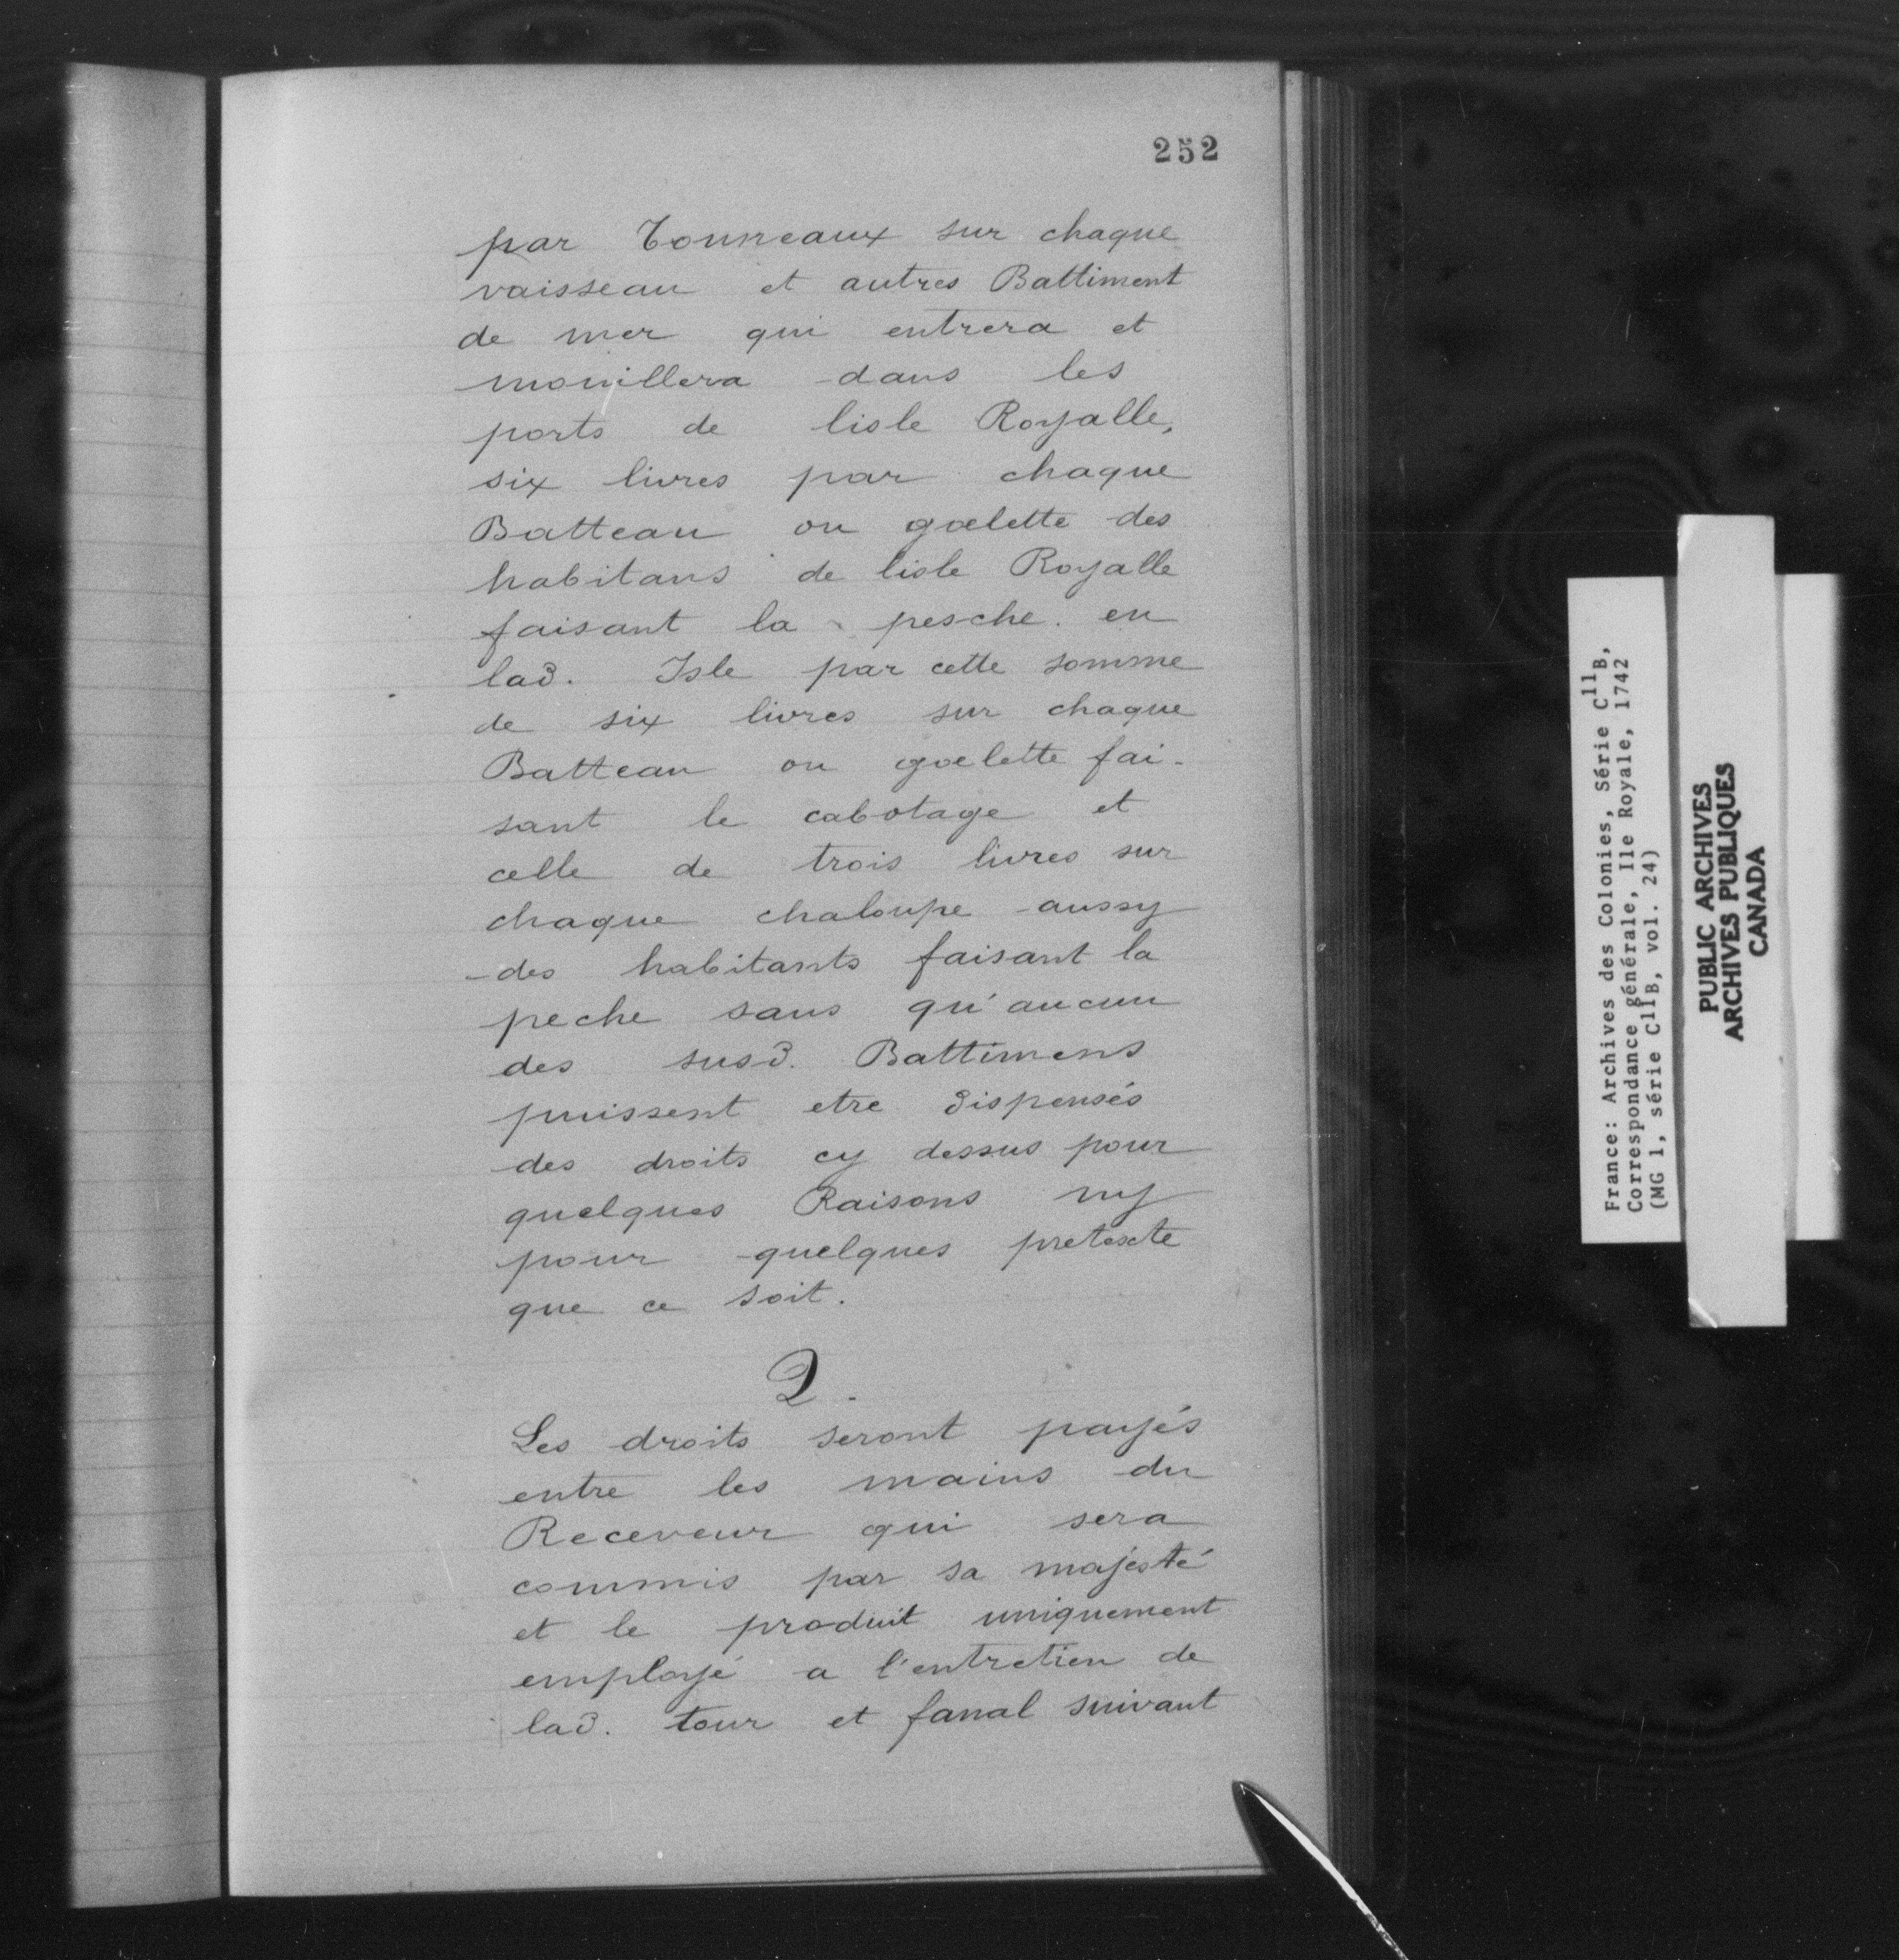 252
par Tonneaux sur chaque
vaisseau et autres Battiment
de mer qui entrera et
mouillera dans les
ports de lisle Royalle,
six livres par chaque
Batteau ou goelette des
habitans de lisle Royalle
faisant la pesche en
lad. Isle par cette somme
de six livres sur chaque
Batteau ou goelette fai-
sant le cabotage et
celle de trois livres sur
chaque chaloupe aussy
des habitants faisant la
peche sans qu'aucun
des susd. Battimens
puissent etre dispensés
des droits cy dessus pour
quelques Raisons ny
pour quelques pretexte
que ce soit.
2.
Les droits seront payés
entre les mains du
Receveur qui sera
commis par sa majesté
et le produit uniquement
employé a l'entretien de
lad. tour et fanal suivant
France: Archives des Colonies, Série C11B,
Correspondance générale, Ile Royale, 1742
(MG 1, série C11B, vol. 24)
PUBLIC ARCHIVES
ARCHIVES PUBLIQUES
CANADA